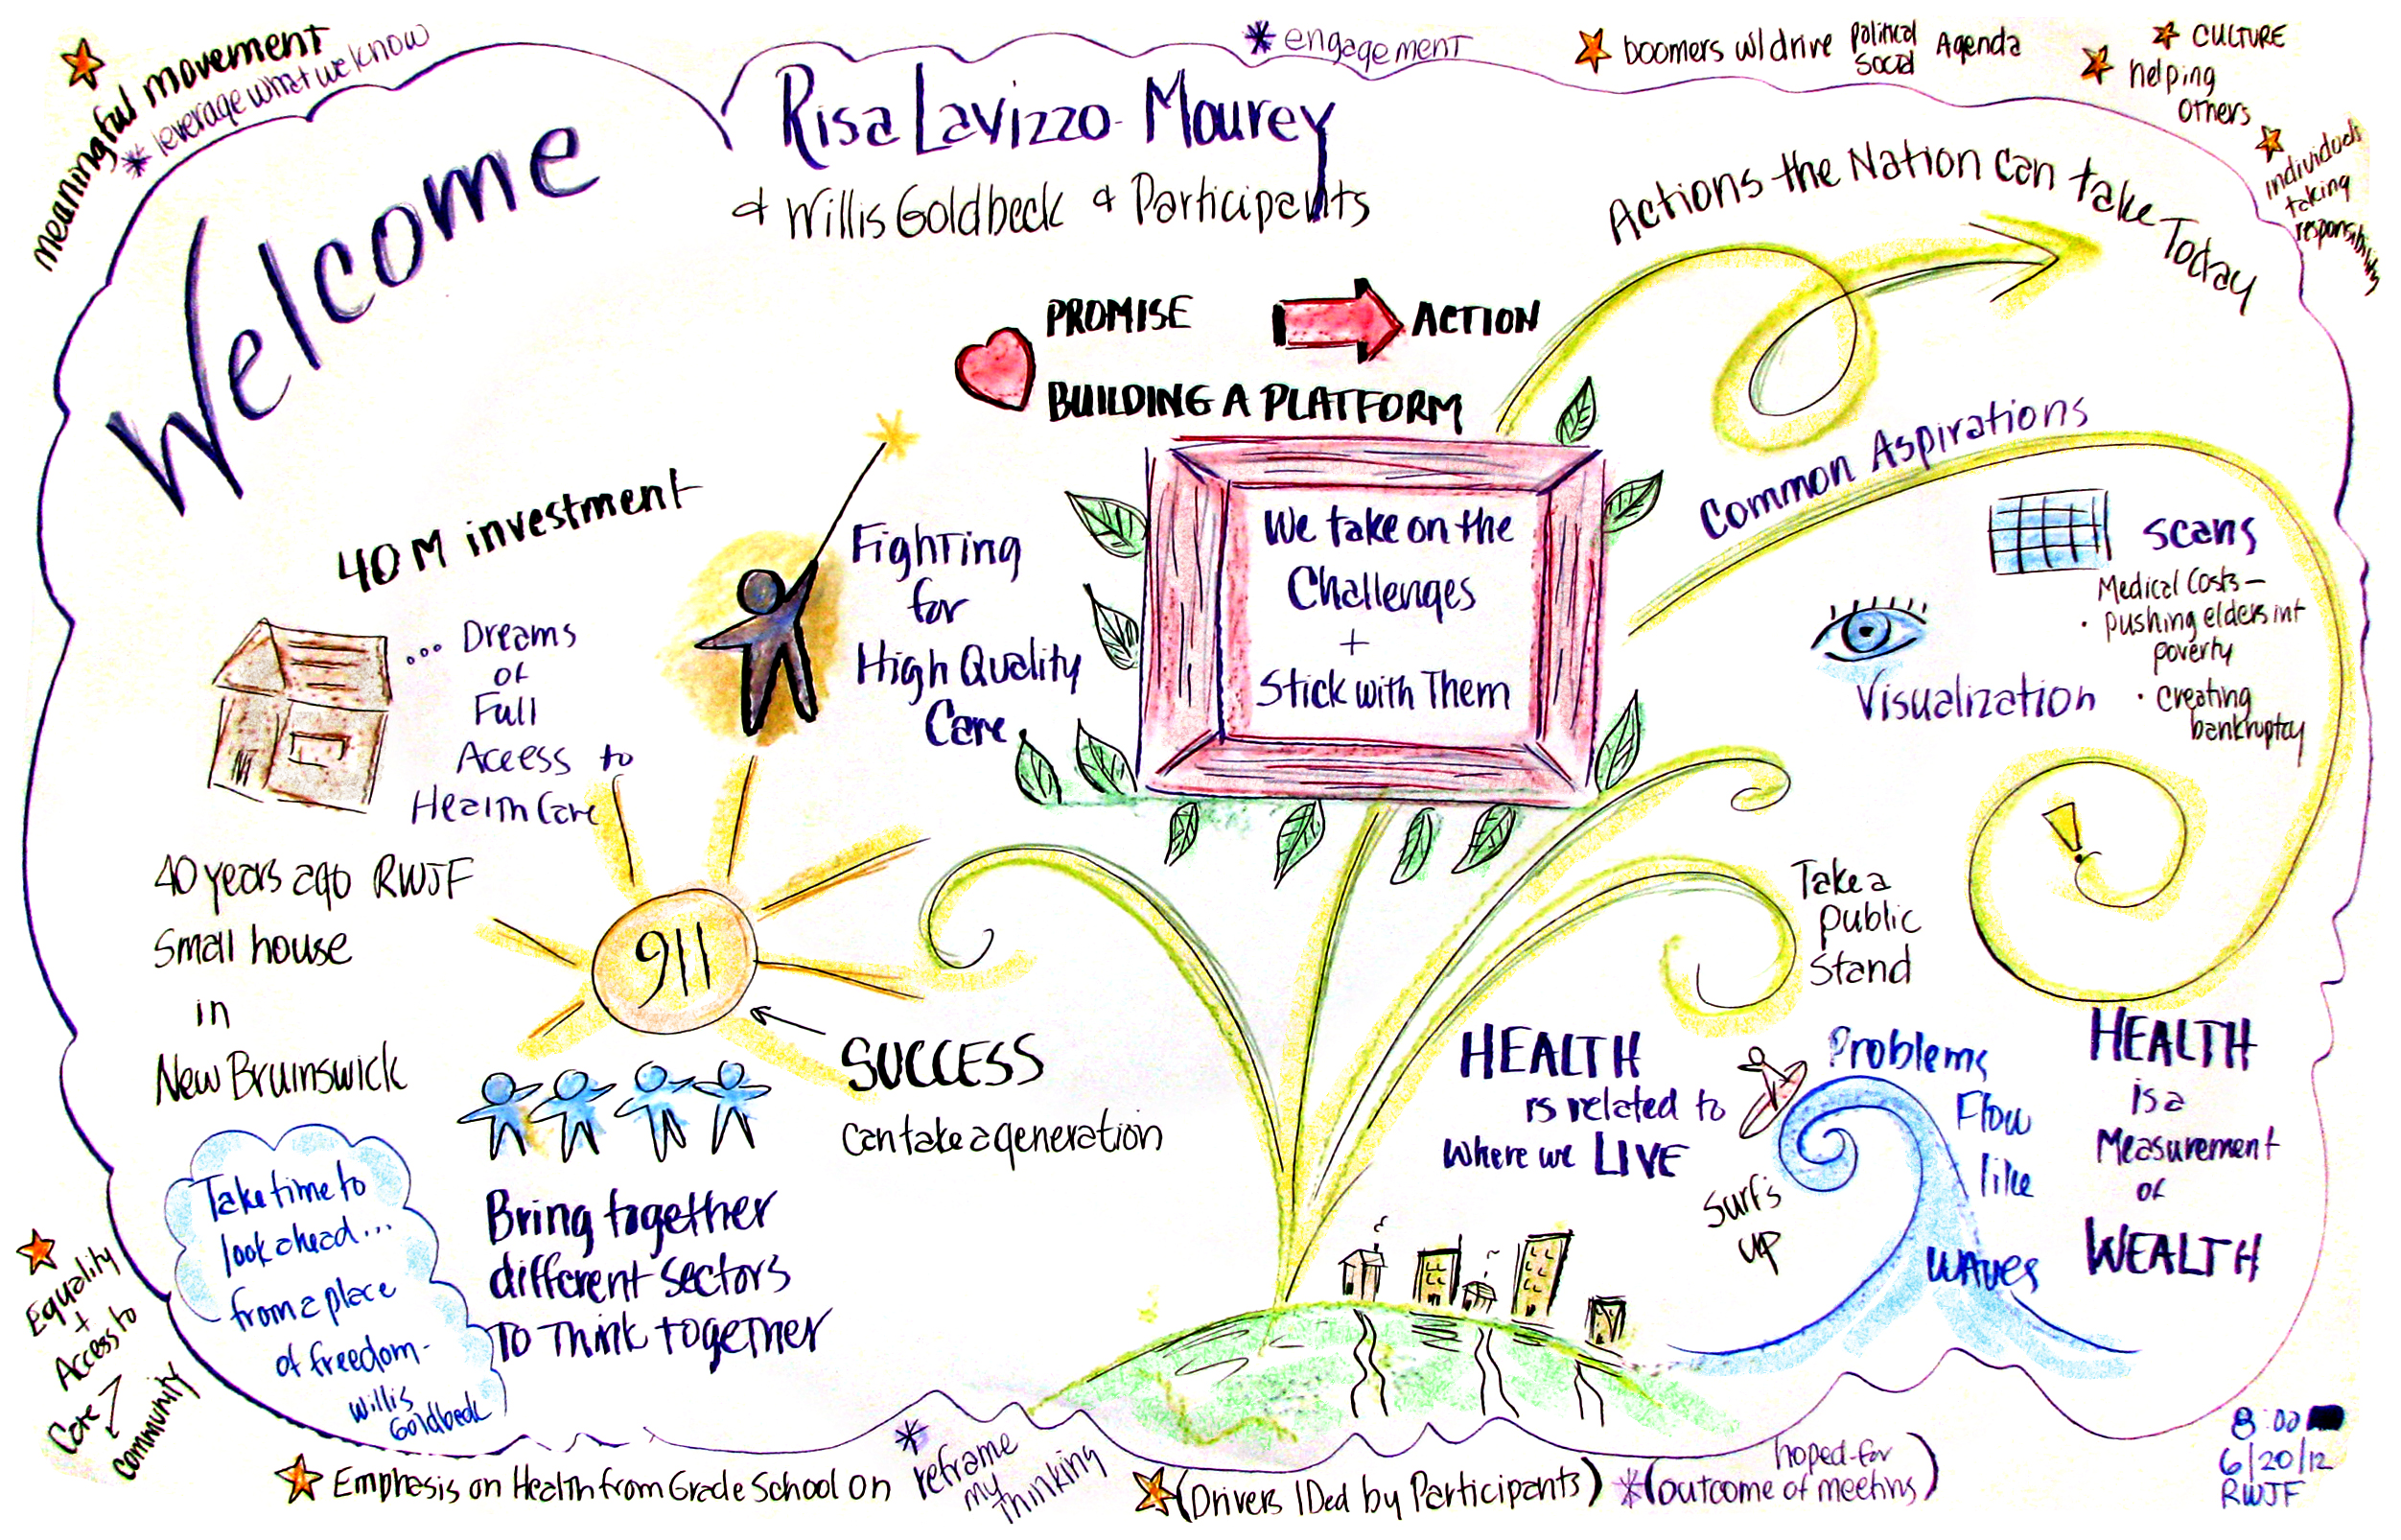 meaningful movement
* leverage what we know
* engagement
boomers w/ drive Political
Social
Agenda
CULTURE
helping
others
individuals
taking
responsibility
Welcome
Risa Lavizzo-Mourey
+ Willis Goldbeck + Participants
Actions the Nation can take Today
PROMISE
ACTION
BUILDING A PLATFORM
40 M investment
... Dreams
of
Full
Access to
Health Care
Fighting
for
High Quality
Care
We take on the
Challenges
+
Stick with Them
Common Aspirations
Scans
Medical Costs –
• pushing elders int
poverty
• Creating
bankruptcy
Visualization
!
40 years ago RWJF
Small house
in
New Bruinswick
911
SUCCESS
Can take a generation
Take a
public
Stand
HEALTH
is related to
where we LIVE
Surf's
UP
Problems
Flow
like
waves
HEALTH
is a
Measurement
of
WEALTH
Take time to
look ahead...
from a place
of freedom-
Willis
Goldbeck
Bring together
different sectors
To Think together
Equality
+
Access to
Care
community
Emphasis on Health from Grade School on
* reframe
my
thinking
(Drivers IDed by Participants)
* (hoped-for
outcome of meetins)
8:00
6/20/12
RWJF